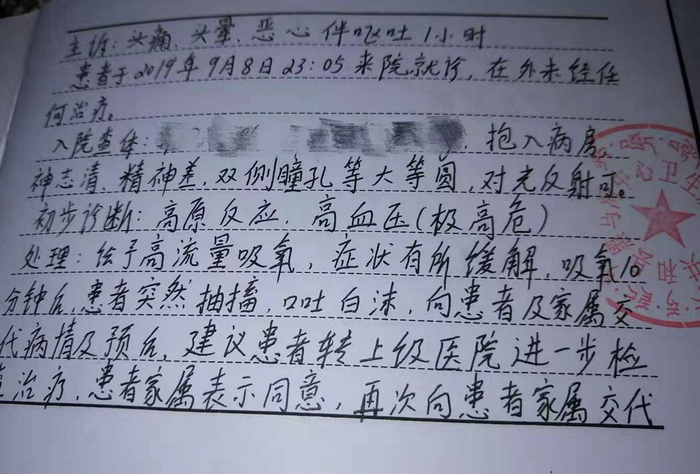 主诉：头痛、头晕、恶心伴呕吐1小时
患者于2019年9月8日23:05来院就诊，在外未经任
何治疗。
入院查体： 抱入病房，
神志清，精神差，双侧瞳孔等大等圆，对光反射可。
初步诊断：高原反应、高血压（极高危）
处理：给予高流量吸氧，症状有所缓解，吸氧10
分钟后，患者突然抽搐，口吐白沫，向患者及家属交
代病情及预后，建议患者转上级医院进一步检
治疗，患者家属表示同意，再次向患者家属交代